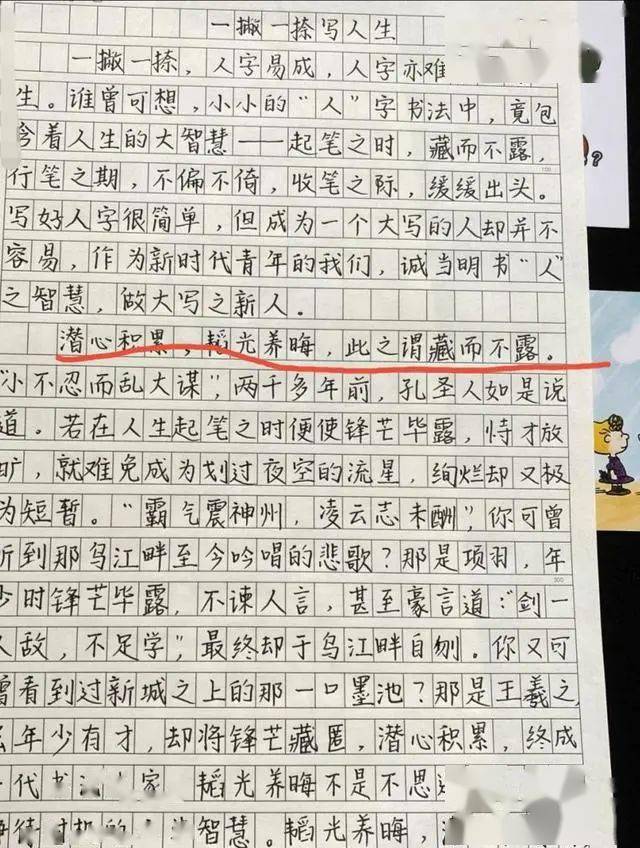 一撇一捺写人生
一撇一捺，人字易成，人字亦难
生。谁曾可想，小小的“人”字书法中，竟包
含着人生的大智慧——起笔之时，藏而不露，
行笔之期，不偏不倚，收笔之际，缓缓出头。
写好人字很简单，但成为一个大写的人却并不
容易，作为新时代青年的我们，诚当明书“人”
之智慧，做大写之新人。
潜心积累，韬光养晦，此之谓藏而不露。
“小不忍而乱大谋”，两千多年前，孔圣人如是说
道。若在人生起笔之时便使锋芒毕露，恃才放
旷，就难免成为划过夜空的流星，绚烂却又极
为短暂。“霸气震神州，凌云志未酬”，你可曾
听到那乌江畔至今吟唱的悲歌？那是项羽，年
少时锋芒毕露，不谏人言，甚至豪言道：“剑一
人敌，不足学”，最终却于乌江畔自刎。你又可
曾看到过新城之上的那一口墨池？那是王羲之，
年少有才，却将锋芒藏匿，潜心积累，终成
一代书法大家。韬光养晦不是不思进
待时机的人生智慧。韬光养晦，
100
300
?